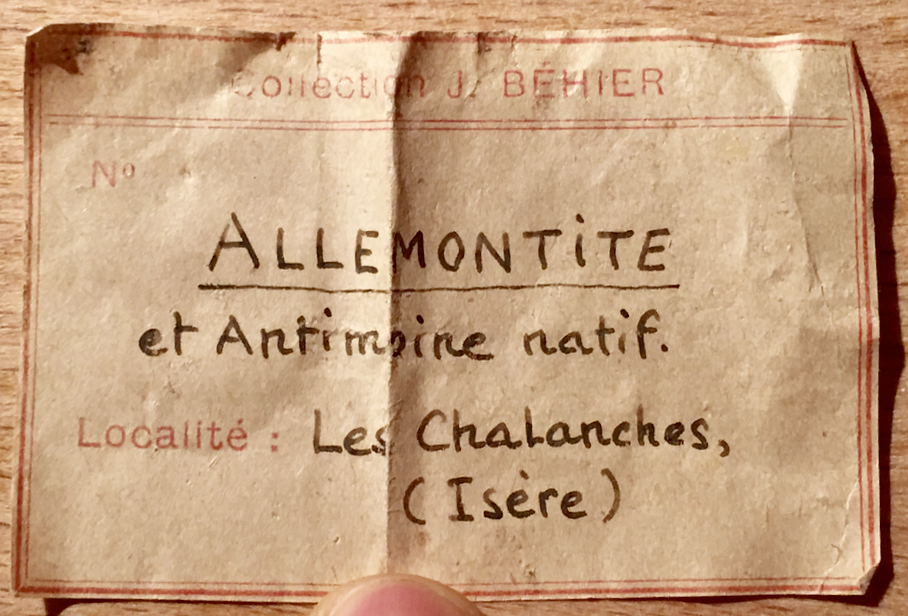 Collection J. BÉHIER
Nº
ALLEMONTITE
et Antimoine natif.
Localité : Les Chalanches,
(Isère)